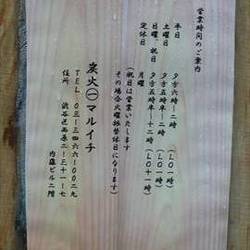 営業時間のご案内
平日 夕方六時〜二時 (LO一時)
土曜日 夕方五時半〜十二時 (LO十一時)
日曜、祝日 夕方五時〜十二時 (LO十一時)
定休日 月曜
(祝日は営業いたします
その場合火曜振替休日になります)
炭火㊀マルイチ
TEL.〇三-三四六六-〇〇二九
住所 渋谷区西原二-三十一-七
内藤ビル二階